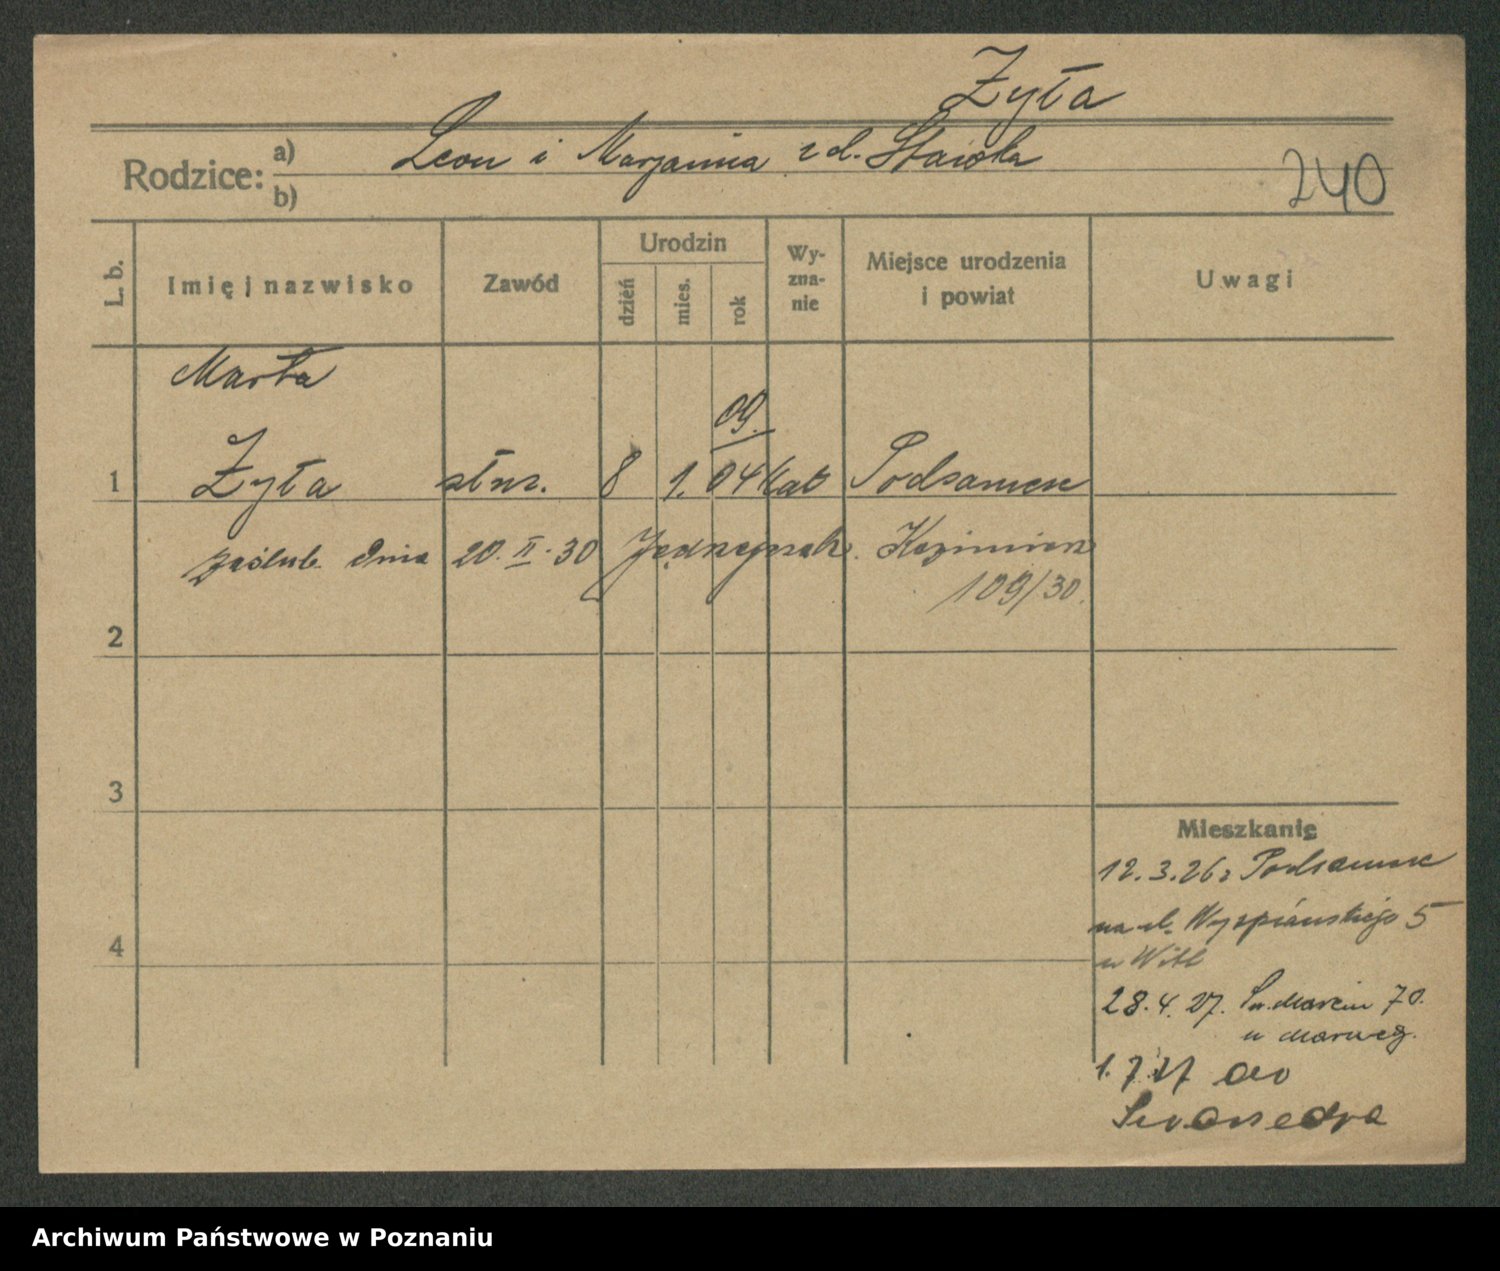 Żyła
Rodzice: a) Leon i Marjanna z d.
b)
240
L. b.
Imię i nazwisko
Zawód
Urodzin
dzień
mies.
rok
Wy-
zna-
nie
Miejsce urodzenia
i powiat
Uwagi
Marta
09.
1 Żyła służ. 8 1. 04 kat Podsamcze
zaślub. dnia 20. II. 30 Jędrzejczak Kazimierz
109/30.
2
3
4
Mieszkanie
12.3.26 z Podsamcze
na ul. Wyspiańskiego 5
u Witt
28.4.27. Św. Marcin 70.
u
1.7.27 do
Archiwum Państwowe w Poznaniu